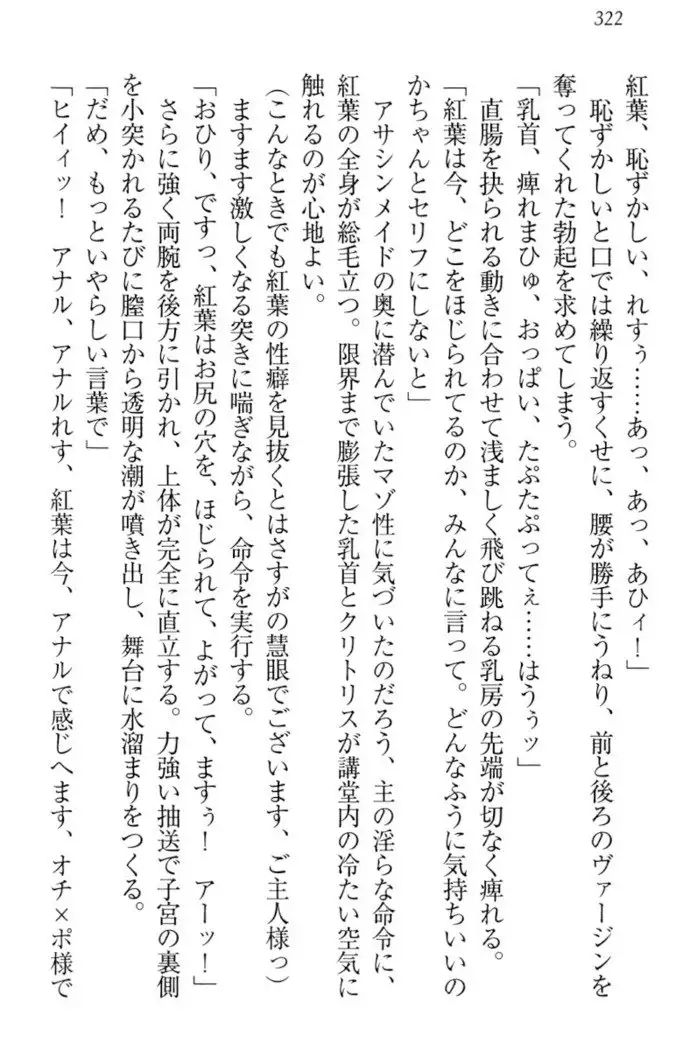 322
紅葉、恥ずかしい、れすぅ……あっ、あっ、あひィ！」
恥ずかしいと口では繰り返すくせに、腰が勝手にうねり、前と後ろのヴァージンを
奪ってくれた勃起を求めてしまう。
「乳首、痺れまひゅ、おっぱい、たぷたぷってぇ……はうぅッ」
直腸を抉られる動きに合わせて浅ましく飛び跳ねる乳房の先端が切なく痺れる。
「紅葉は今、どこをほじられてるのか、みんなに言って。どんなふうに気持ちいいの
かちゃんとセリフにしないと」
アサシンメイドの奥に潜んでいたマゾ性に気づいたのだろう、主の淫らな命令に、
紅葉の全身が総毛立つ。限界まで膨張した乳首とクリトリスが講堂内の冷たい空気に
触れるのが心地よい。
（こんなときでも紅葉の性癖を見抜くとはさすがの慧眼でございます、ご主人様っ）
ますます激しくなる突きに喘ぎながら、命令を実行する。
「おひり、ですっ、紅葉はお尻の穴を、ほじられて、よがって、ますぅ！　アーッ！」
さらに強く両腕を後方に引かれ、上体が完全に直立する。力強い抽送で子宮の裏側
を小突かれるたびに膣口から透明な潮が噴き出し、舞台に水溜まりをつくる。
「だめ、もっといやらしい言葉で」
「ヒイィッ！　アナル、アナルれす、紅葉は今、アナルで感じへます、オチ×ポ様で